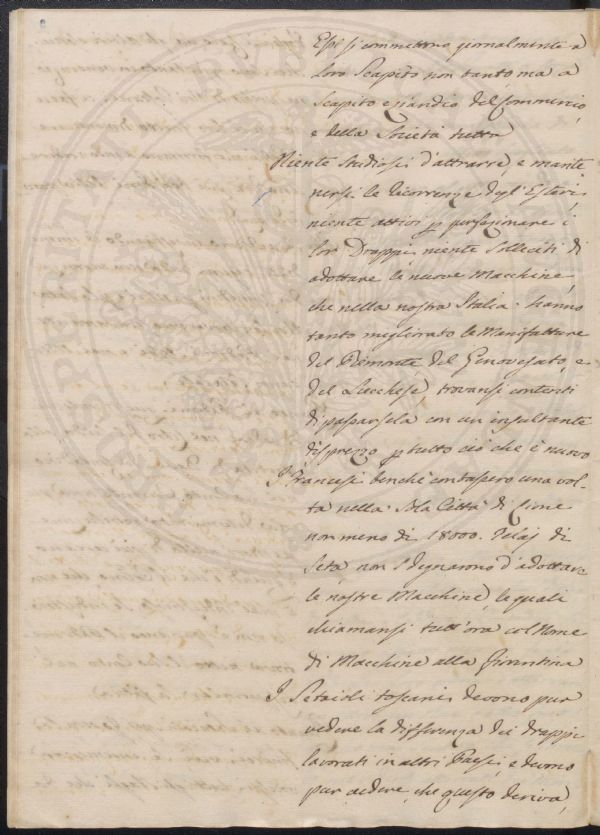 Essi si commettono giornalmente a
loro Scapito non tanto, ma a
Scapito eziandio del Commercio,
e della Società tutta
Niente studiosi d'attrarre, e mante
nersi le Ricorrenze degl'Esteri,
niente attivi p perfezionare i
lor Drappi niente solleciti di
adottare le nuove Macchine,
che nella nostra Italia hanno
tanto migliorato le Manifatture
del Piemonte, del Genovesato, e
del Lucchese, trovansi contenti
di passarsela con un insultante
disprezzo p tutto ciò che è nuovo
I Francesi benchè contassero una vol-
ta nella sola Città di Lione
non meno di 18000. Telaj di
Seta, non sdegnarono d'adottare
le nostre Macchine, le quali
chiamansi tutt'ora col Nome
di Macchine alla fiorentina
I Setaioli toscani devono pur
vedere la differenza dei drappi
lavorati in altri Paesi, e devono
pur vedere, che questo deriva,